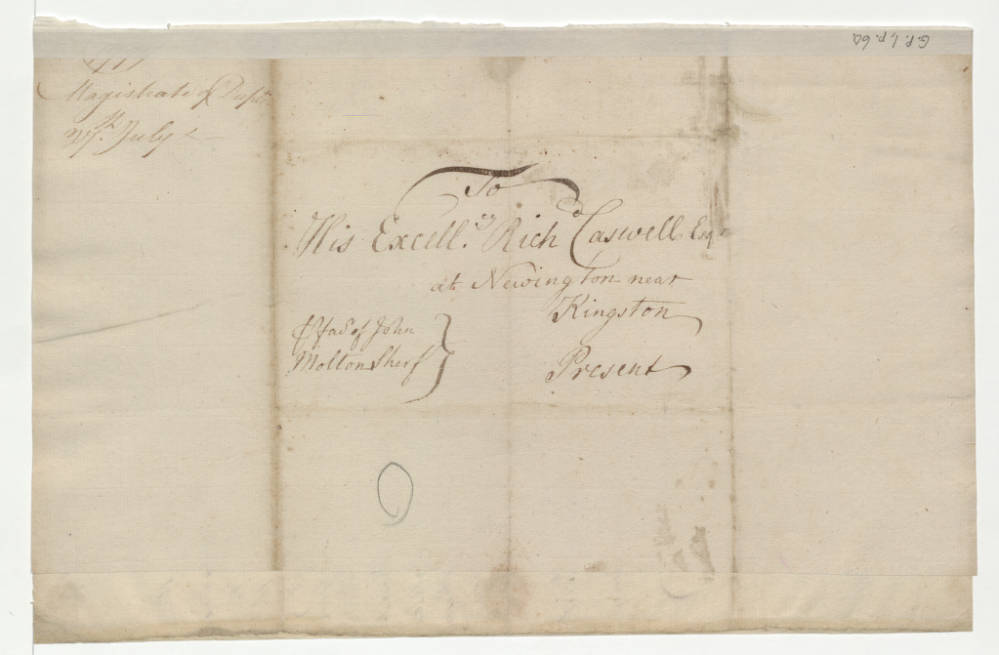 G.P. 1, p. 62
Magistrate of Dup
27th July
To
His Excell.cy Richd Caswell Esqr
at Newington near
Kingston
Present
favd of John
Molton Sherf